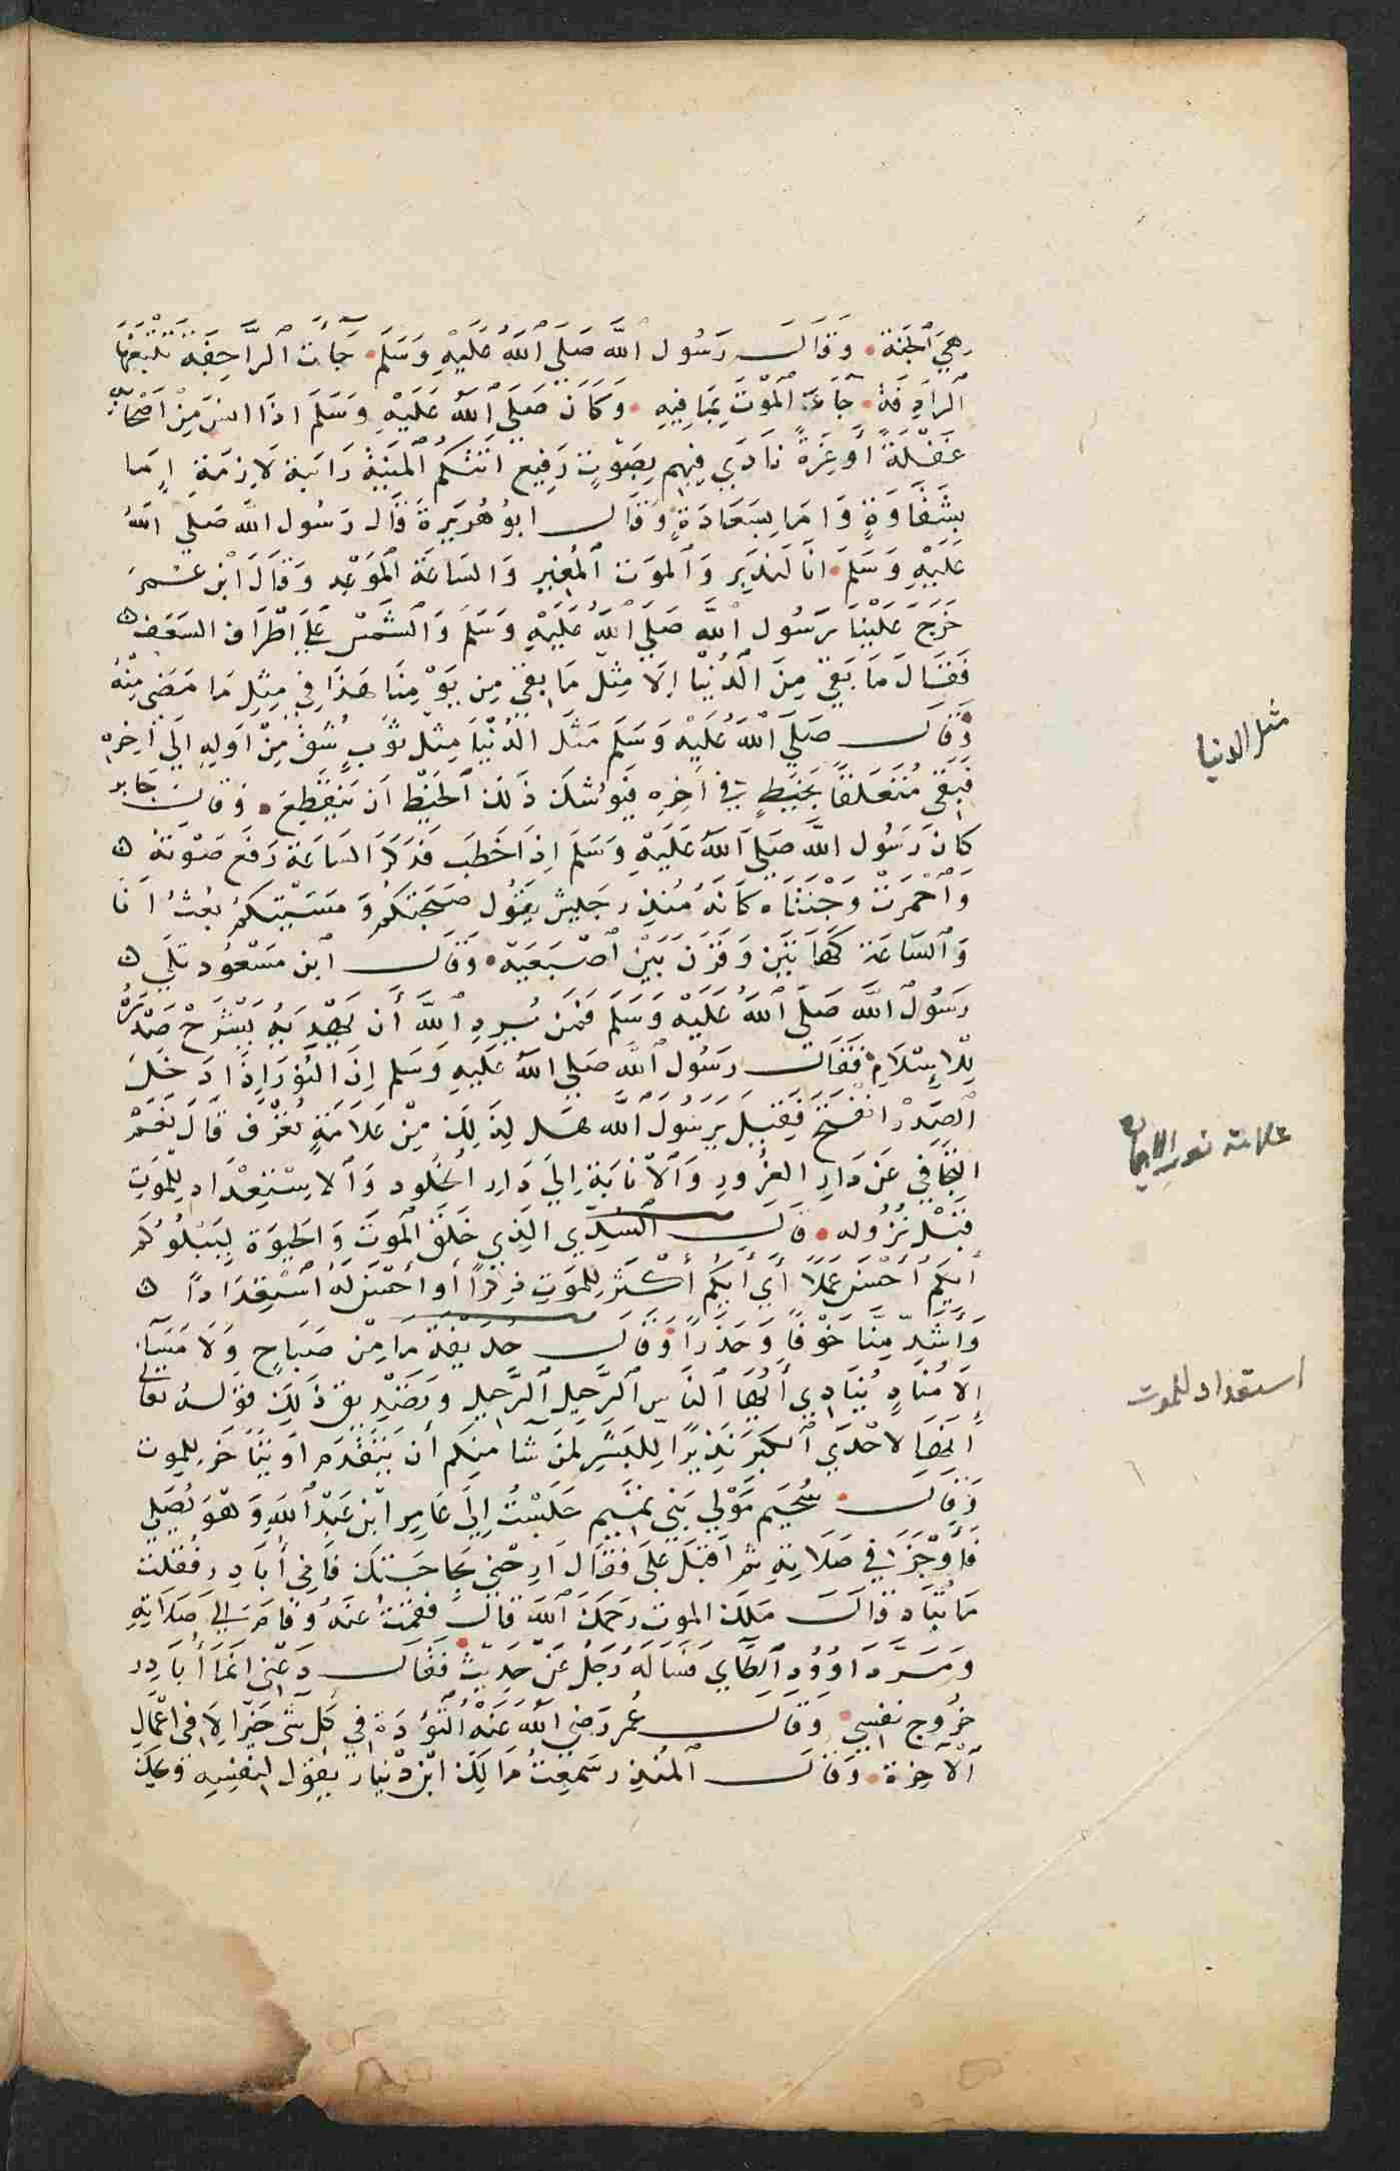 هيَ الجنة وقال رسُول الله صَلى اللهُ عَليْهِ وَسَلم جَأت الرَّاجِفَة تتْبَعُهَا
الرَّادِفَة جَاءَ الموْت بمَا فِيهِ وَكان صَلى اللهُ عَليْهِ وَسَلمَ اذا انسَ مِنْ اصْحَابِهِ
غفلَةً أو غِرَّةً نادَي فِيهِم بِصَوْتٍ رَفِيع اتتكم المنيَّة رَاتبة لازمَة إمَا
بِشَقَاوَةٍ وَامَا بِسَعَادَةٍ وَقال ابوُ هُرَيرَة قال رسُول الله صَلى اللهُ
عَليْهِ وَسَلمَ انا النذير وَالموت المُغير وَالسَاعَة المَوْعِد وَقال ابْن عُمَر
خرَجَ عَليْنا رَسُول اللهِ صَلى اللهُ عَليْهِ وَسَلم وَالشَّمْس عَلَي اطْرَاف السَّعَف
فقَال مَا بَقِي مِنَ الدُّنْيا إلا مِثل مَا بقي مِن يَوْمِنَا هَذا في مِثل مَا مَضى مِنْهُ
وَقال صَلى اللهُ عَليْهِ وَسَلم مَثل الدُّنْيا مِثل ثوبٍ شُقَّ مِنْ أوَلِهِ إلَى أخِرهِ
فبَقِيَ مُتعَلقًا بخَيطٍ في أخِرِه فيُوشك ذَلك الخيْط ان ينقطِعَ وَقال جَابر
كان رَسُول الله صَلى اللهُ عَليْهِ وَسَلم اذا خطَبَ فذكرَ السَاعَة رَفع صَوْته
وَاحْمَرَّتْ وَجْنتاه كانَهُ مُنذِر جَيْش يقُول صَبَّحتكُم وَمَسَّيتكُم بُعِثتُ أنا
وَالسَّاعَة كهَاتيْن وَقرَن بَيْنَ اصْبَعَيْهِ وَقال ابْن مَسْعُود تلَي
رَسُول اللهِ صَلى اللهُ عَليْهِ وَسَلم فمَن يُرِدِ اللهُ أن يَهْدِيَهُ يَشْرَحْ صَدْرَهُ
لِلاِسْلامِ فقَال رَسُول اللهِ صَلى اللهُ عَليْهِ وَسَلم إنَّ النُّورَ اِذا دَخلَ
الصَدْر انفسَحَ فقِيلَ يَرَسُولَ اللهِ هَل لِذلِكَ مِنْ عَلامَةٍ تُعْرَف قالَ نعَمْ
التجَافِي عَن دَارِ الغرُورِ وَالانابَةِ إلَى دَارِ الخلُود وَالاسْتِعْدَاد لِلمَوتِ
قبْل نزُوله قال السُّدِّي الذِي خلقَ المَوتَ وَالحَيوَة لِيَبْلُوكُم
أيُّكم أحْسَنُ عَمَلاً أَي أيُّكم أكْثر لِلمَوتِ ذِكرًا أو أحْسَن لَهُ اسْتِعْدَادًا
وَأشَدّ مِنَّا خوْفاً وَحَذَرًا وَقال حُذيْفة مَا مِنْ صَبَاح وَلا مَسَآء
إلا مُنَادٍ يُنادِي أيُّهَا النَّاس الرَّحِيل الرَّحِيل وَتصْدِيق ذلِك قوْلهُ تعالى
إنَّهَا لاحْدَي الكبَر نذِيرًا لِلبَشَرِ لِمَن شا مِنكم أن يَتقدَّم اوْ يَتأخر للمِوت
وَقال سُحَيم مَوْلي بَنِي تَميم جَلسْتُ إلَى عَامِر ابْن عَبْد اللهِ وَهْوَ يُصَلِي
فأوْجَزَ في صَلاتِهِ ثم اقبَلَ عَلَى فقال ارِحْني بحَاجَتك فاني أبَادِر فقُلت
مَا تُبَادِر قال مَلكَ الموت رَحَمكَ اللهُ قال فقمْتُ عَنهُ وَقامَ إلى صَلاتِهِ
وَمَرَّ دَاوُود الطَّاي فسَالهُ رَجُل عَنْ حَدِيثٍ فقال دَعْنِي إنمَا أبَادِر
خرُوج نفسِي وَقال عُمر رَضِي اللهُ عَنْهُ التُّؤدَة في كل شَيْ خيْر إلا في اعْمَال
الآخِرَة وَقال المُنذِر سَمعْتُ مَالِك ابْن دِينار يقُول لِنفسِهِ وَيحَكَ
مثل الدنيا
علامة نور الايمان
استعداد للموت